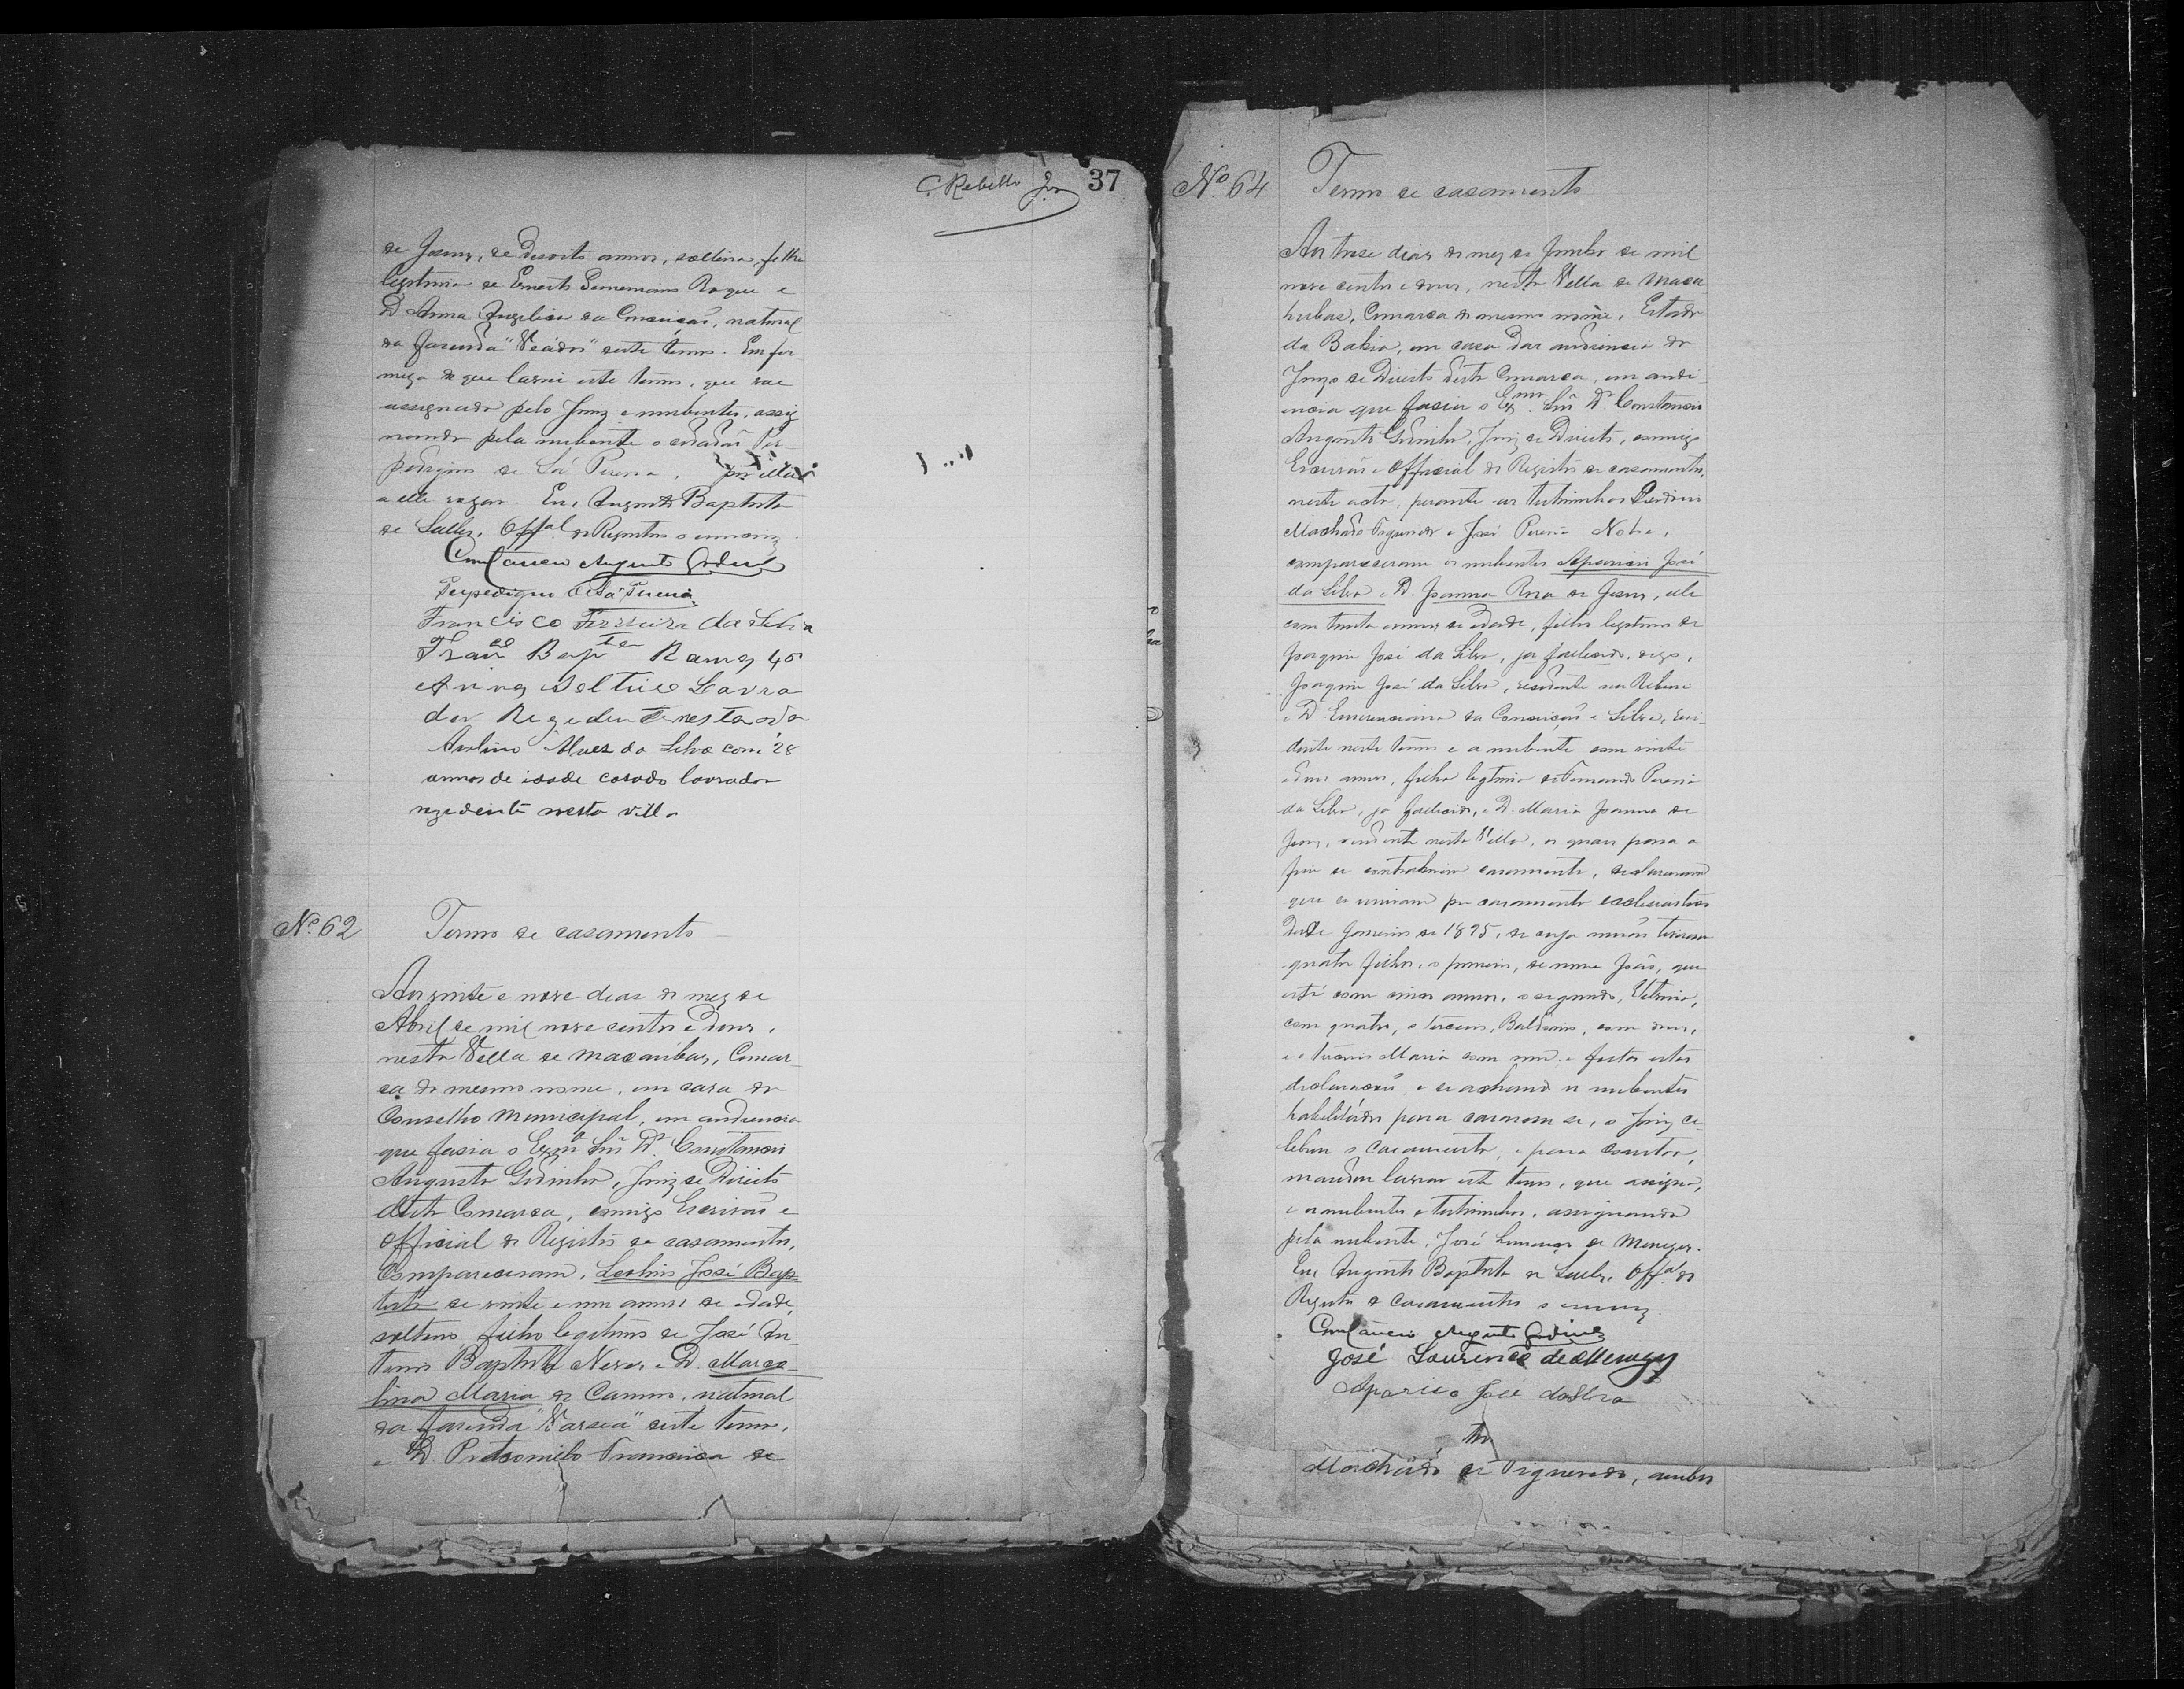 C. Rebello Jor 37
de Jesus, de desoito annos, solteira, filha
legitima de Ernesto Roque e
D. Anna Angelica da Conceição, natural
da fasenda "Veádos" deste termo. Em fir
mesa do que lavrei este termo, que vae
assignado pelo Juiz e nubentes, assig
nando pela nubente o cidadão Per
pedigno de Sá Pereira,
a elle rogar. Eu, Augusto Baptista
de Salles, Offal. do Registro o escrevi
Constancio Augusto Godinho
Perpedigno de Sá Pereira
Francisco Ferreira da Silva
Franco Bapta Ramos 40
annos Lavra
dor Rezedente nesta
Avelino Alves da Silva com 28
annos de idade casado lavrador
rezedente nesta villa
No. 62
Termo de casamento
Aos vinte e nove dias do mez de
Abril de mil nove centos e dous,
nesta Villa de Macaúbas, Comar
ca do mesmo nome, em casa do
Conselho Municipal, em audiencia
que fasia o Exmo Snr Dr. Constancio
Augusto Godinho, Juiz de Direito
desta Comarca, comigo Escrivão e
Official do Registro de casamentos,
Compareceram, José Bap
tista de vinte e um annos de edade,
solteiro, filho legitimo de José An
tonio Baptista Neves e D. Marce
lina Maria do Carmo, natural
da fasenda "Varsea" deste termo,
e D. Francisca de
No. 64
Termo de casamento
Aos trese dias do mez de Junho de mil
nove centos e dous, nesta Villa de Maca
hubas, Comarca do mesmo nome, Estado
da Bahia, em casa das audiencia do
Juizo de Direito desta Comarca, em audi
encia que fasia o Exmo. Snr Dr Constancio
Augusto Godinho, Juiz de Direito, comigo
Escrivão e Official do Registro de casamentos,
neste acto, perante as testimunhas
Machado Figueredo e José Pereira Nobre,
compareceram os nubentes Aparicio José
da Silva e D. Joanna Rosa de Jesus, elle
com trinta annos de edade, filho legitimo de
Joaquim José da Silva, ja fallecido, digo,
Joaquim José da Silva, residente na
e D. Emerenciana da Conceição e Silva, resi
dente neste termo e a nubente com vinte
e dous annos, filha legitima de Fernando Pereira
da Silva, já fallecido, e D. Maria Joanna de
Jesus, residente nesta Villa, os quaes para o
fim de contrahirem casamento, declararam
que se uniram por casamento ecclesiastico
desde Janeiro de 1895, de cuja união tiveram
quatro filhos, o primeiro, de nome João, que
está com cinco annos, o segundo,
com quatro, o terceiro, Balduino, com dous,
e o terceiro Maria com um e feitas estas
declaração e se achando os nubentes
habilitados para casarem-se, o Juiz ce
lebrou o casamento, e para constar,
mandou lavrar este termo, que assigna,
e os nubentes e testimunhas, assignando
pela nubente, José Lourenço de Menezes.
Eu, Augusto Baptista de Salles, Offal do
Registro de Casamentos o escrevi
Constancio Augusto Godinho
José Lourenço de Menezes
Aparicio José da Silva
Machado de Figueredo, ambos